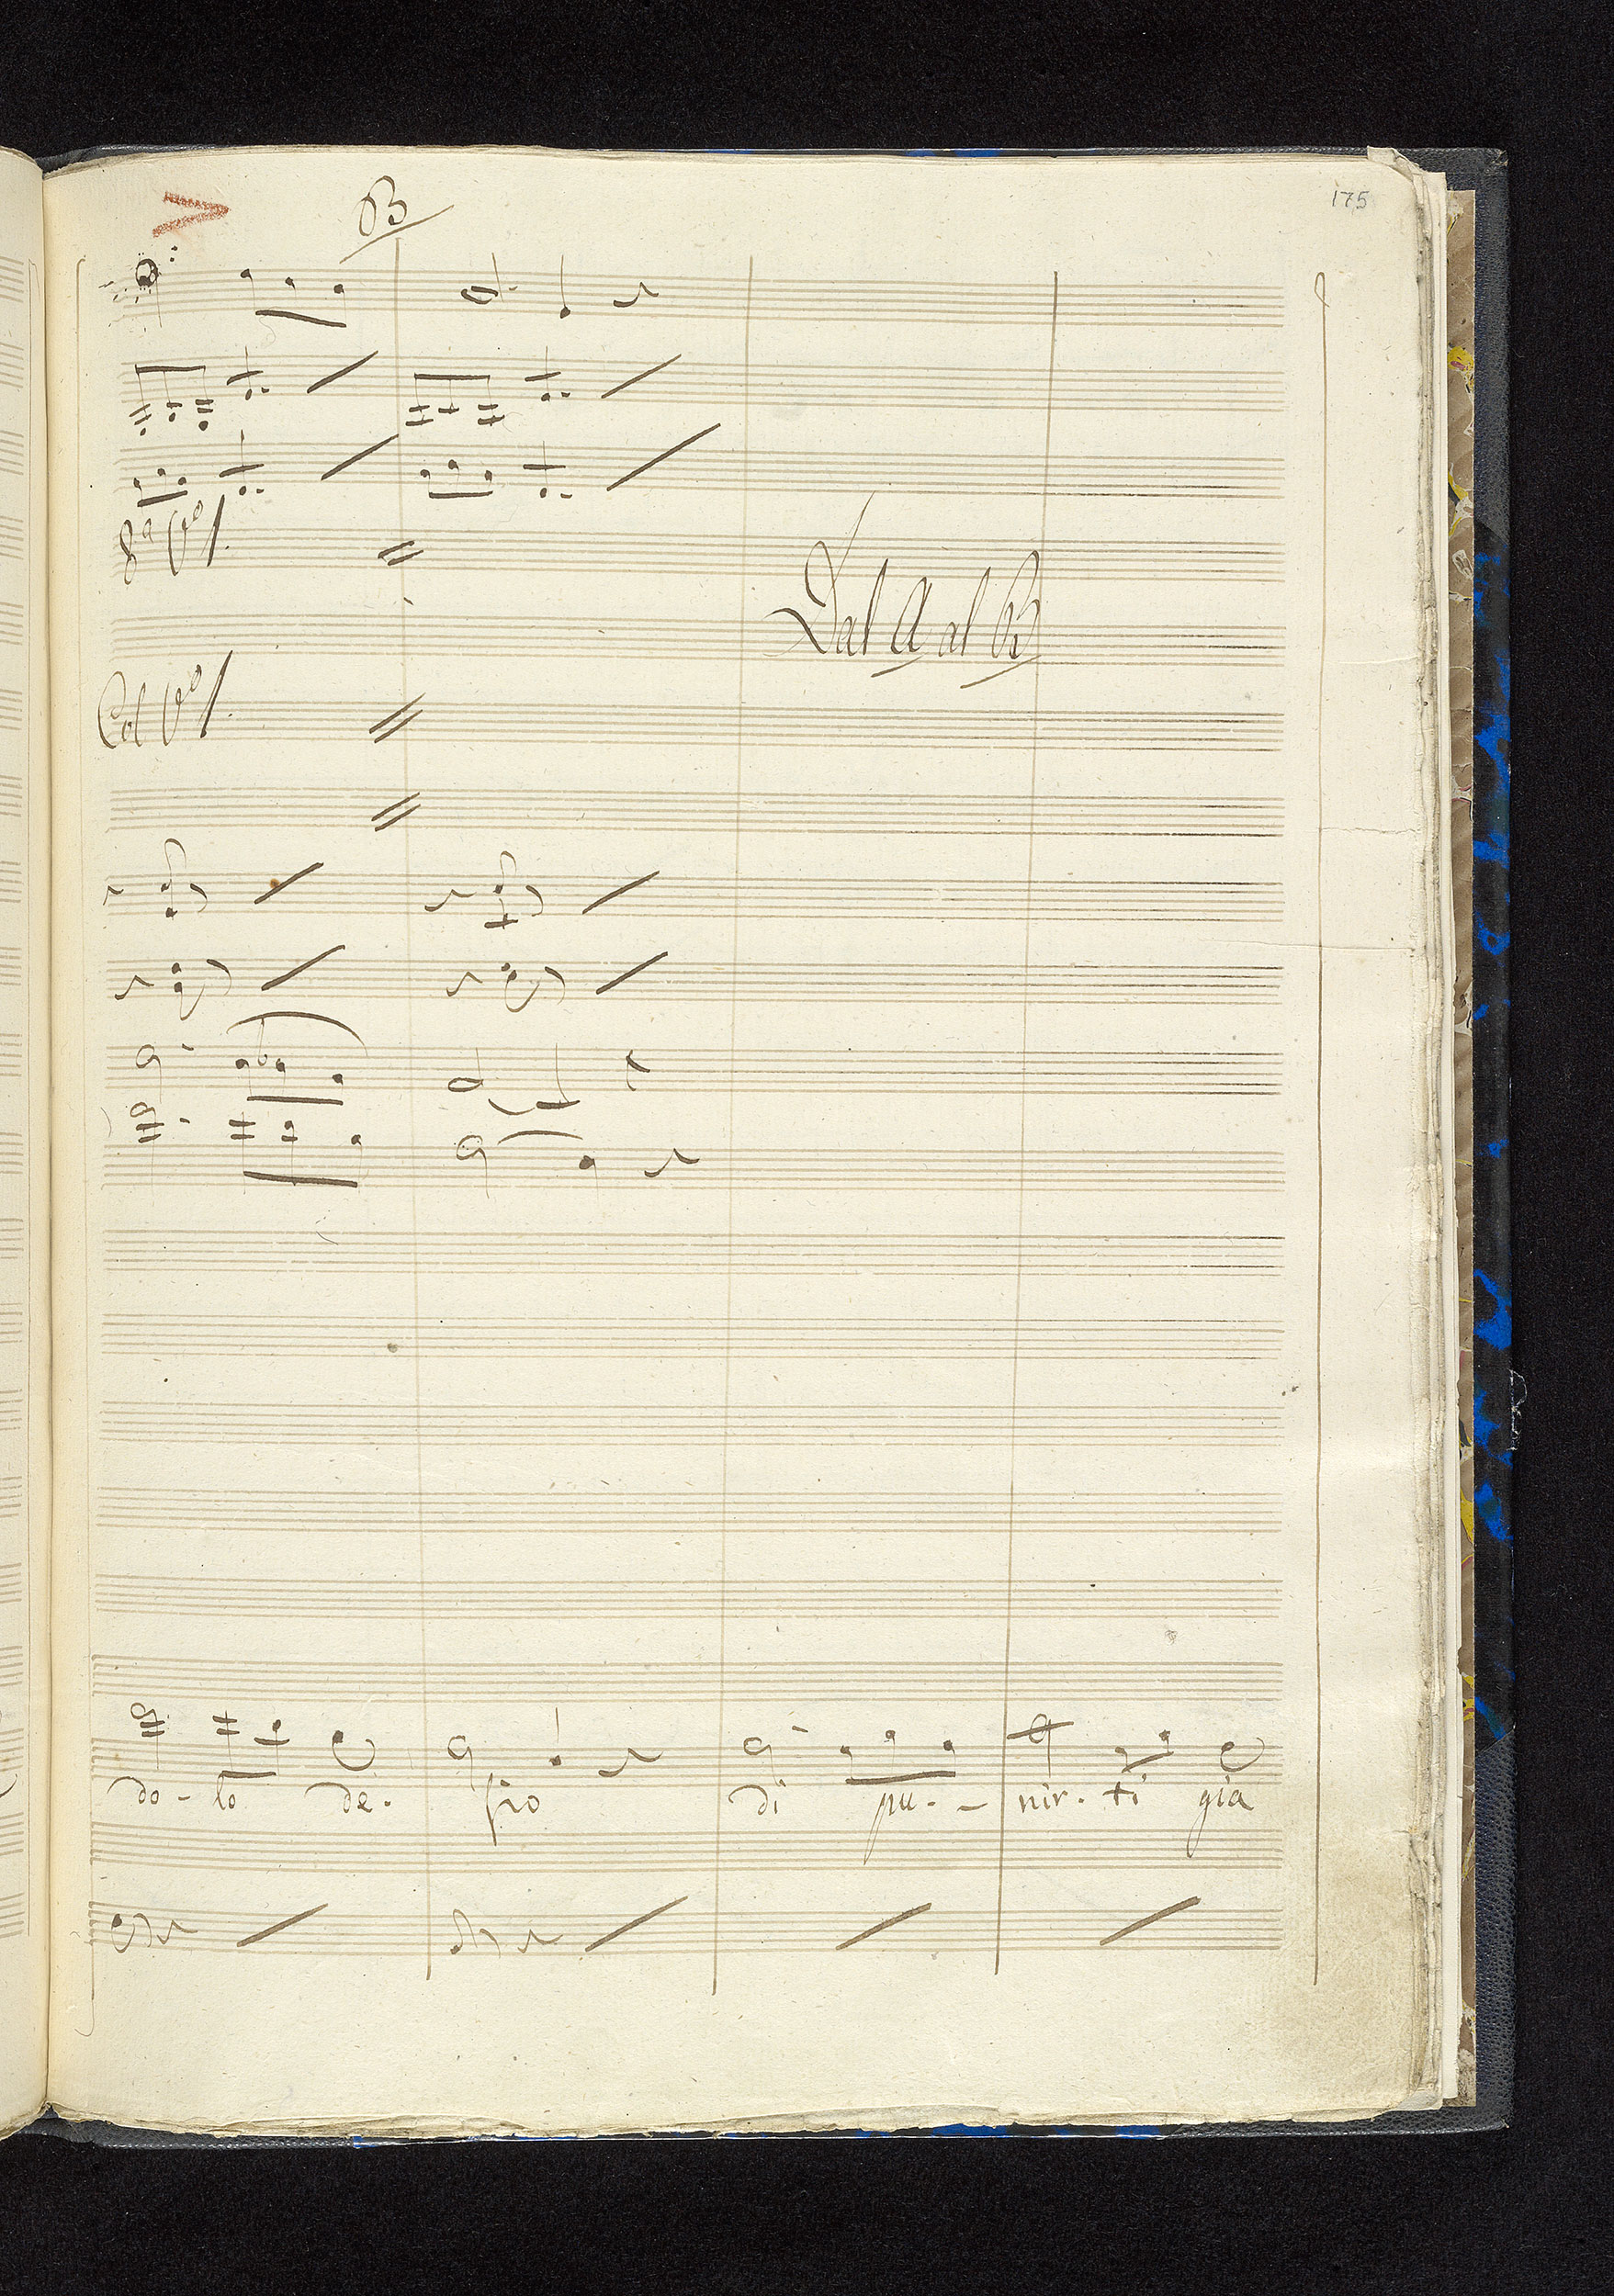 175
B
8ª Vº/.
Dal A al B
Col Vº/.
do - lo de - sio di pu - - nir - ti gia